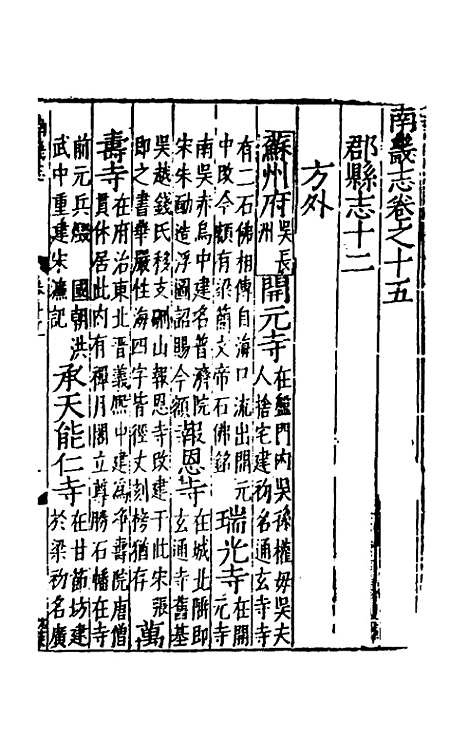 南畿志卷之十五
郡縣志十二
方外
蘇州府 吳長洲 開元寺 在盤門內吳孫權母吳夫
人捨宅建初名通玄寺寺
有二石佛相傳自海口流出開元
中改今額有梁簡文帝石佛銘 瑞光寺 在開
元寺
南吳赤烏中建名普濟院
宋朱勔造浮圖詔賜今額 報恩寺 在城北隅即
玄通寺舊基
吳越錢氏移支硎山報恩寺改建于此宋張
即之書華嚴性海四字皆徑丈刻榜猶存 萬
壽寺 在府治東北晋義熙中建爲淨壽院唐僧
貫休居此内有禪月閣立尊勝石幢在寺
前元兵燬 國朝洪
武中重建宋濂記 承天能仁寺 在甘節坊建
於梁初名廣